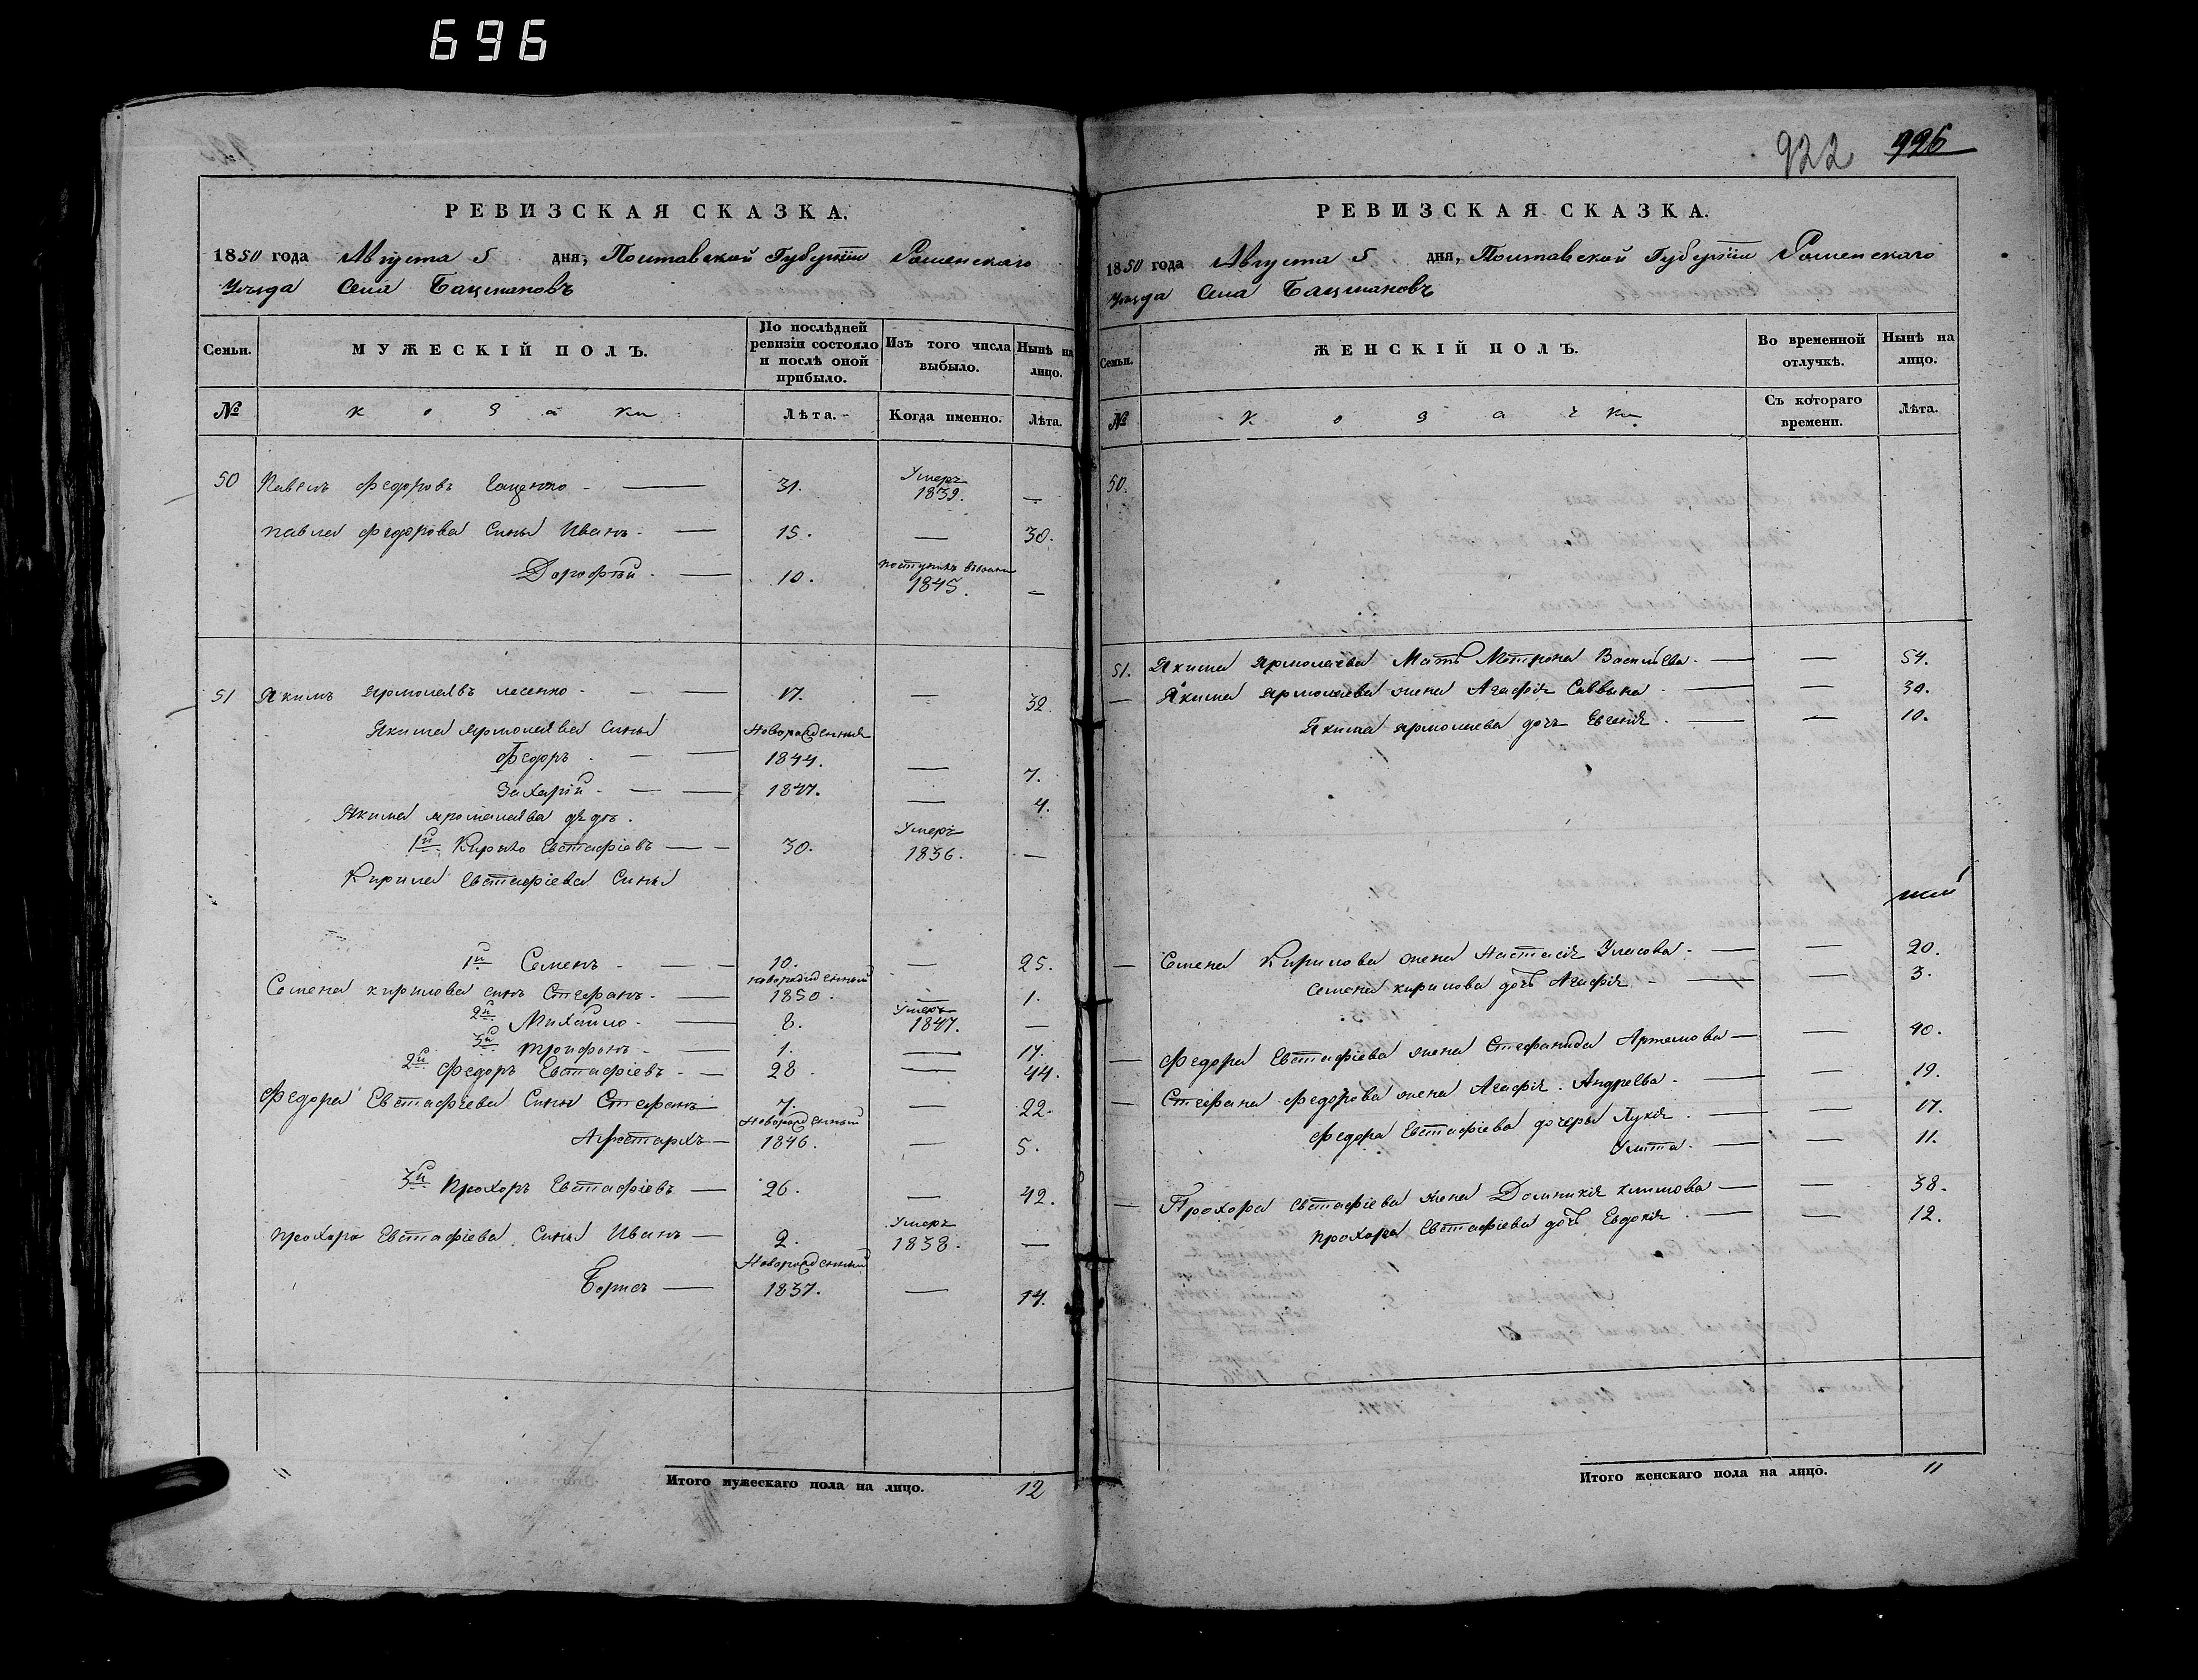 696
922 925
РЕВИЗСКАЯ СКАЗКА.
1850 года Августа 5 дня, Полтавской Губерніи Роменскаго
Уѣзда Села Бацмановъ
Семьи. МУЖЕСКІЙ ПОЛЪ. По послѣдней ревизіи состояло и послѣ оной прибыло. Изъ того числа выбыло. Нынѣ на лицо.
№ Козаки Лѣта. Когда именно. Лѣта.
50 Павелъ Федоровъ Гаценко 31. Умеръ 1839. —
Павла Федорова Сыны Иванъ 15. — 30.
Дорофѣй 10. 1845. —
51 Якимъ Ярмолаевъ Лесенко 17. — 32.
Якима Ярмолаева Сыны Новорожденныя
Федоръ 1844. — 7.
Захарій 1847. — 4.
Якима Ярмолаева дядъ.
1й Кирило Евстафіевъ 30. Умеръ 1836. —
Кирила Евстафіева Сыны
1й Семенъ 10. — 25.
Семена Кирилова сынъ Стефанъ новорожденный 1850. — 1.
2й Михайло 8. Умеръ 1847. —
3й Трифонъ 1. — 17.
2й Федоръ Евстафіевъ 28. — 44.
Федора Евстафіева Сыны Стефанъ 7. — 22.
Аристархъ Новорожденный 1846. — 5.
3й Прохоръ Евстафіевъ 26. — 42.
Прохора Евстафіева Сыны Иванъ 2. Умеръ 1838. —
Борисъ Новорожденный 1837. — 14.
Итого мужескаго пола на лицо. 12
РЕВИЗСКАЯ СКАЗКА.
1850 года Августа 5 дня, Полтавской Губерніи Роменскаго
Уѣзда Села Бацмановъ
Семьи. ЖЕНСКІЙ ПОЛЪ. Во временной отлучкѣ. Нынѣ на лицо.
№ Козачки Съ котораго времени. Лѣта.
50.
51. Якима Ярмолаева Мать Мотрона Васильева — 54.
— Якима Ярмолаева жена Агафія Саввина — 30.
Якима Ярмолаева дочь Евгенія — 10.
— Семена Кирилова жена Настасія Уласова — 20.
Семена Кирилова дочь Агафія — 3.
— Федора Евстафіева жена Стефанида Артемова — 40.
— Стефана Федорова жена Агафія Андреева — 19.
Федора Евстафіева дочеры Лукія — 17.
Улита — 11.
— Прохора Евстафіева жена Домникія Климова — 38.
Прохора Евстафіева дочь Евдокія — 12.
Итого женскаго пола на лицо. 11